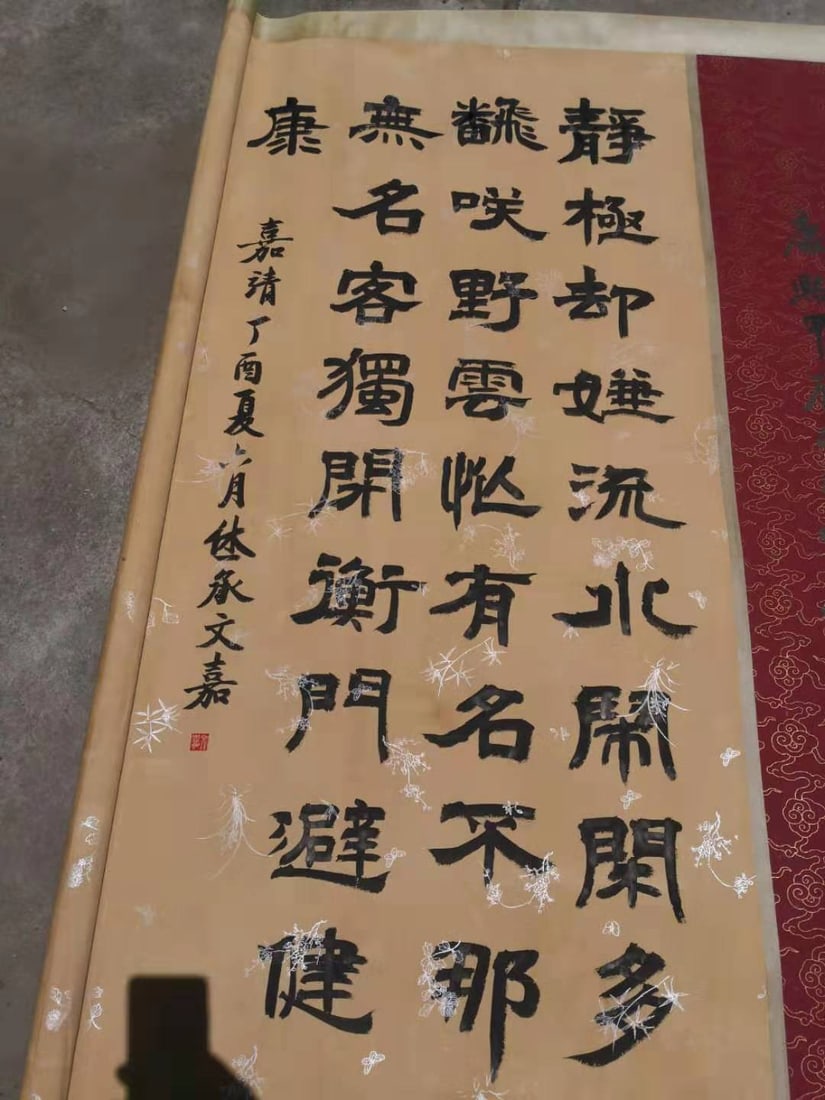 靜極却嫌流水鬧閑多
飜咲野雲忙有名不那
無名客獨閉衡門避健
康
嘉靖丁酉夏六月休承文嘉